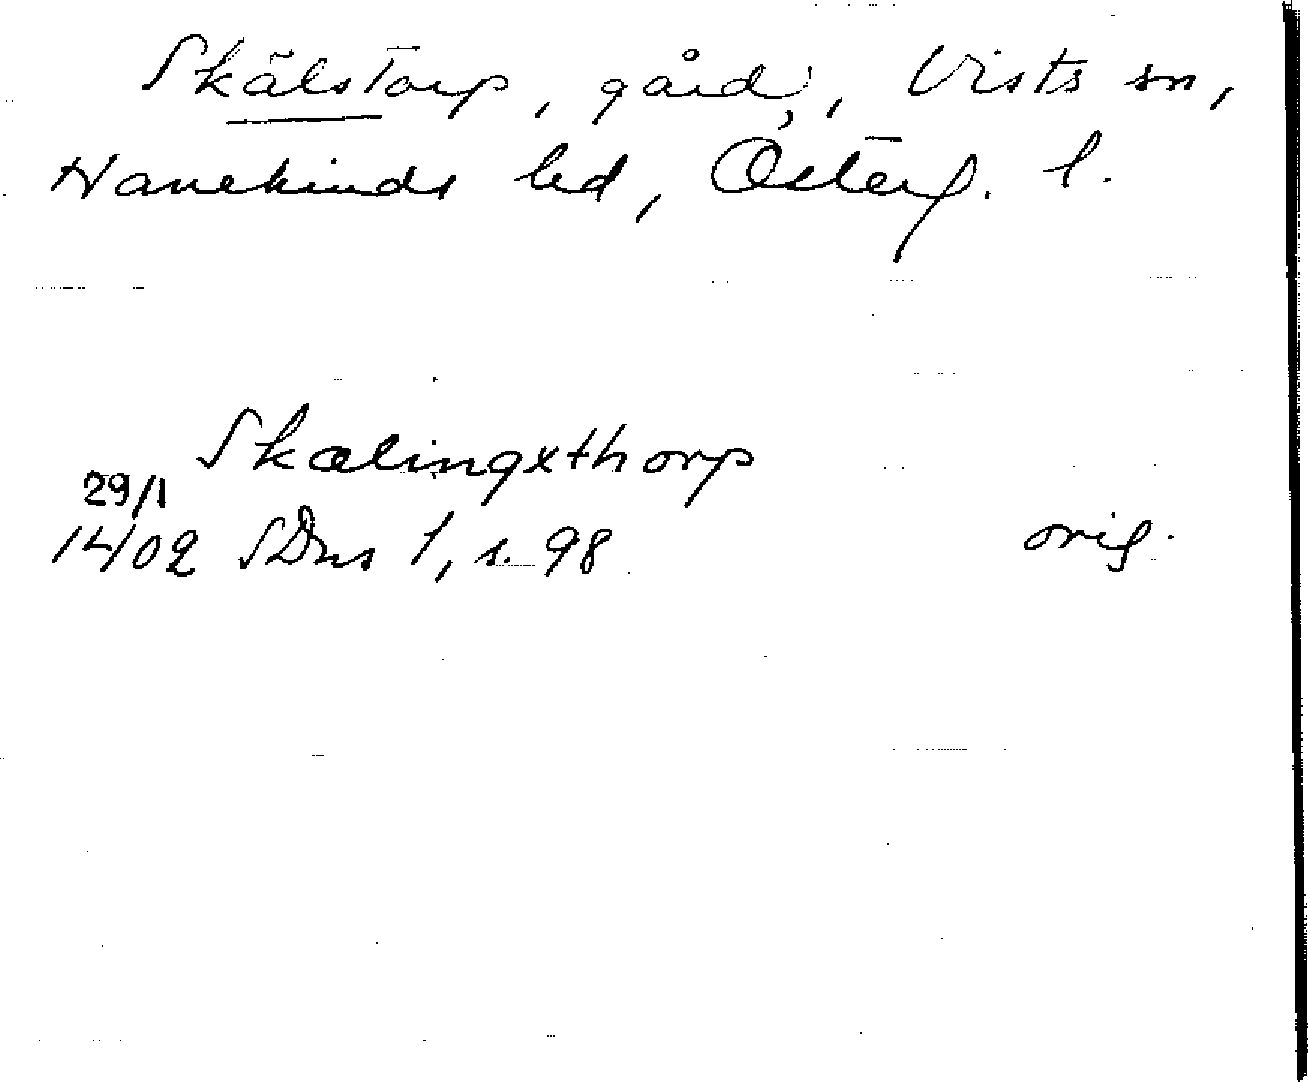 Skälstorp, gård, Vists sn,
Hanekinds hd, Österg. l.
Skælingxthorp
29/1
1402 SDns 1, s. 98 orig.